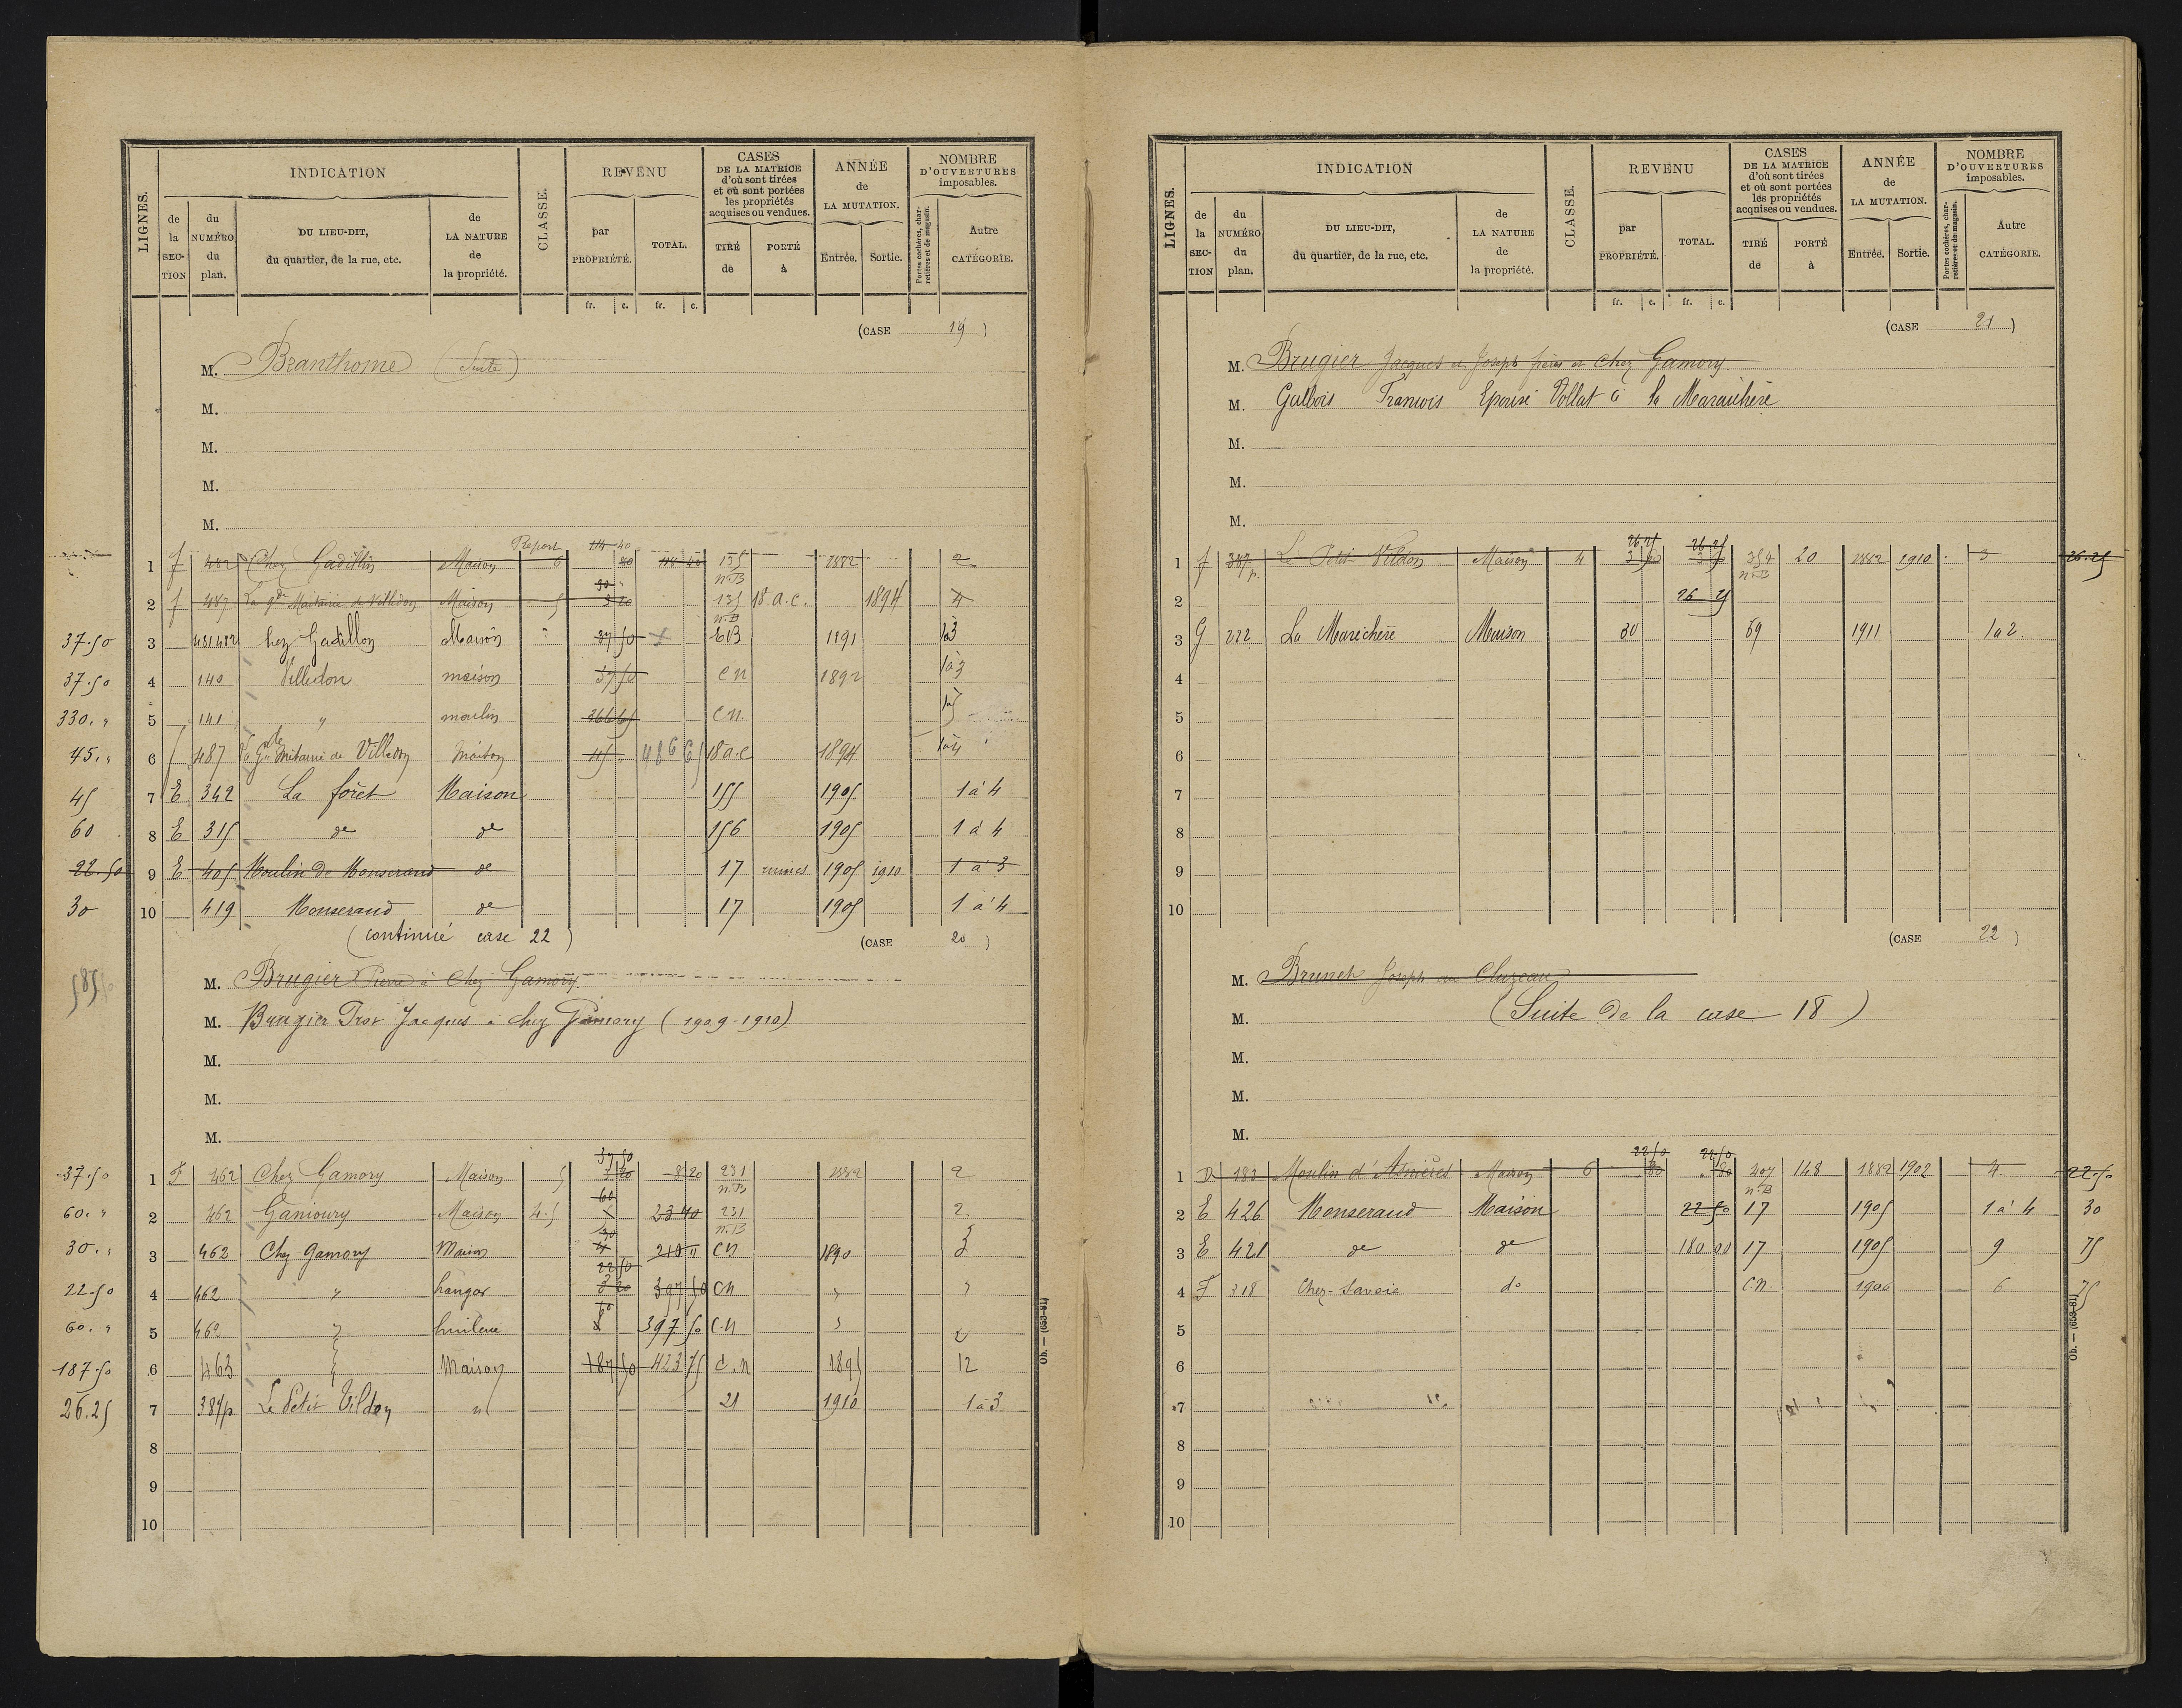 LIGNES. INDICATION CLASSE. REVENU CASES DE LA MATRICE d'où sont tirées et où sont portées les propriétés acquises ou vendues. ANNÉE de LA MUTATION. NOMBRE D'OUVERTURES imposables.
de la SECTION du NUMÉRO du plan. DU LIEU-DIT, du quartier, de la rue, etc. de LA NATURE de la propriété. par PROPRIÉTÉ. TOTAL. TIRÉ de PORTÉ à Entrée. Sortie. Portes cochères, charretières et de magasin. Autre CATÉGORIE.
fr. c. fr. c.
(CASE 19)
M. Branthome (Suite)
M.
M.
M.
M.
Report 114 40
1 f 482 Chez Gadillon Maison 6 80 135 n.B 1882 2
2 f 487 La gde Maitairie de Villedon Maison 5 30 135 n.B 18 a.c. 1894 4
37.50 3 481 482 hez Gadillon Maison 37 50 1891 1à3
37.50 4 140 Villedon maison 37 50 CN 1892 1à3
330. " 5 141 " moulin CN.
45. " 6 f 487 La Gde Métairie de Villedon Maison 45 486 65 18 a.c 1894 1à4
45 7 E 342 La forêt Maison 155 1905 1 à 4
60 8 E 315 de de 156 1905 1 à 4
22.50 9 E 405 Moulin de Monseraud de 17 ruines 1905 1910 1 à 3
30 10 419 Monseraud de 17 1905 1 à 4
(continué case 22)
(CASE 20)
M. Brugier Pierre à Chez Gamory.
M. Brugier Jacques à chez Gamory (1909-1910)
M.
M.
M.
37 50
37.50 1 F 462 Chez Gamory Maison 5 8 20 231 n.B 1882 2
60. " 2 462 Gamoury Maison 4.5 60 23 40 231 n.B 2
30. " 3 462 Chez Gamory Maison 30 CN 1890 3
22.50 4 462 " hangar 22 50 397 50 CN "
60. " 5 462 " huilerie 60 397 50 C.N "
187.50 6 463 " Maison 187 50 423 75 C.n 1895 12
26.25 7 387p Le Petit Vildon " 21 1910 1 à 3
8
9
10
LIGNES. INDICATION CLASSE. REVENU CASES DE LA MATRICE d'où sont tirées et où sont portées les propriétés acquises ou vendues. ANNÉE de LA MUTATION. NOMBRE D'OUVERTURES imposables.
de la SECTION du NUMÉRO du plan. DU LIEU-DIT, du quartier, de la rue, etc. de LA NATURE de la propriété. par PROPRIÉTÉ. TOTAL. TIRÉ de PORTÉ à Entrée. Sortie. Portes cochères, charretières et de magasin. Autre CATÉGORIE.
fr. c. fr. c.
(CASE 21)
M. Brugier Jacques et Joseph frères à Chez Gamory.
M. Galbois François Epouse Vollat à la Marauchère
M.
M.
M.
26 25 26 25
1 f 387 p. Le Petit Vildon Maison 4 354 n.B 20 1882 1910 3 26.25
2 26 25
3 G 222 La Maréchère Maison 30 59 1911 1 à 2.
4
5
6
7
8
9
10
(CASE 22)
M. Brunet Joseph au Cluzeau
M. (Suite de la case 18)
M.
M.
M.
22 50 22 50
1 D 183 Moulin d'Asnières Maison 6 80 80 207 n.B 148 1882 1902 4 22.50
2 E 426 Monseraud Maison 22 50 17 1905 1 à 4 30
3 E 421 de de 180 00 17 1905 9 75
4 F 318 Chez-Savoie do C.N. 1906 6 75
5
6
7
8
9
10
Ob. — (653-81)
Ob. — (653-81)